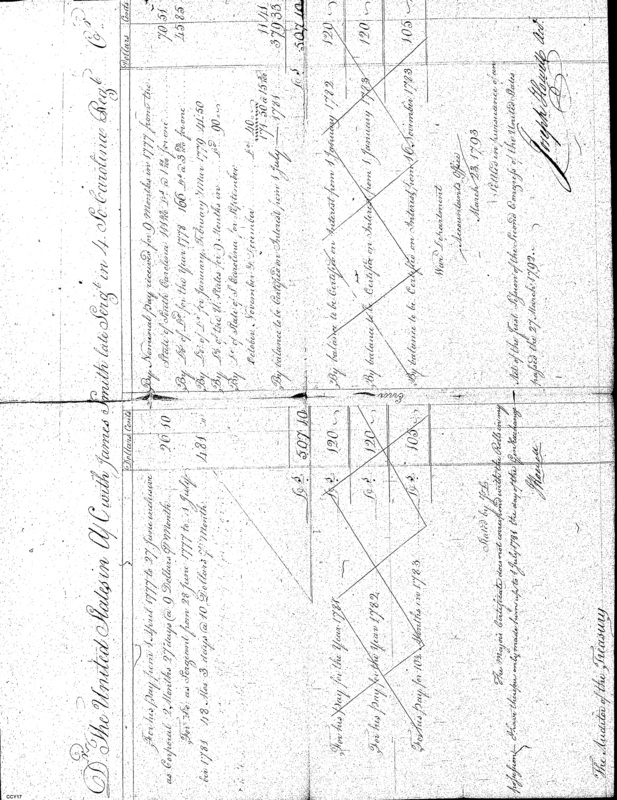 Dr The United States in A/C with James Smith late Sergt in 4 So Carolina Regt Cr
Dollars Cents
For his Pay from 1 April 1777 to 27 June inclusive
as Corporal 2 Months 27 days @ 9 Dollars pr Month 26 10
For Do as Sergeant from 28 June 1777 to 1 July
1781 48 Mos 3 days @ 10 Dollars pr Month 481
Do $ 507 10
For his Pay for the Year 1781 Do $ 120
For his Pay for the Year 1782 Do $ 120
For his Pay for 10½ Months in 1783 Do $ 105
Stated by
The Major's Certificate does not correspond with the Rolls in my
possession I have therefore only made him up to 1 July 1781 the day of the Gen Exchange
The Auditor of the Treasury
Dollars Cents
By Nominal Pay received for 9 Months in 1777 from the
State of South Carolina for one 70 51
By Do of Do for the Year 1778 160 for one 45 85
By Do of Do for January February & Mar 1779 41.50
By Do of the U. States for 9 Months in Do 90
By Do of State of S Carolina for September
October November & December Do 40
171 50 11 41
By balance to be Certified on Interest from 1 July 1781 379 33
Do $ 507 10
By balance to be Certified on Interest from 1 January 1782 120
By balance to be Certified on Interest from 1 January 1783 120
By balance to be Certified on Interest from 16 November 1783 105
Errors
War Department
Accountants Office
March 23, 1793
Settled in pursuance of an
Act of the first Session of the Second Congress of the United States
passed the 27 March 1792
Joseph Howell Act
CCY17